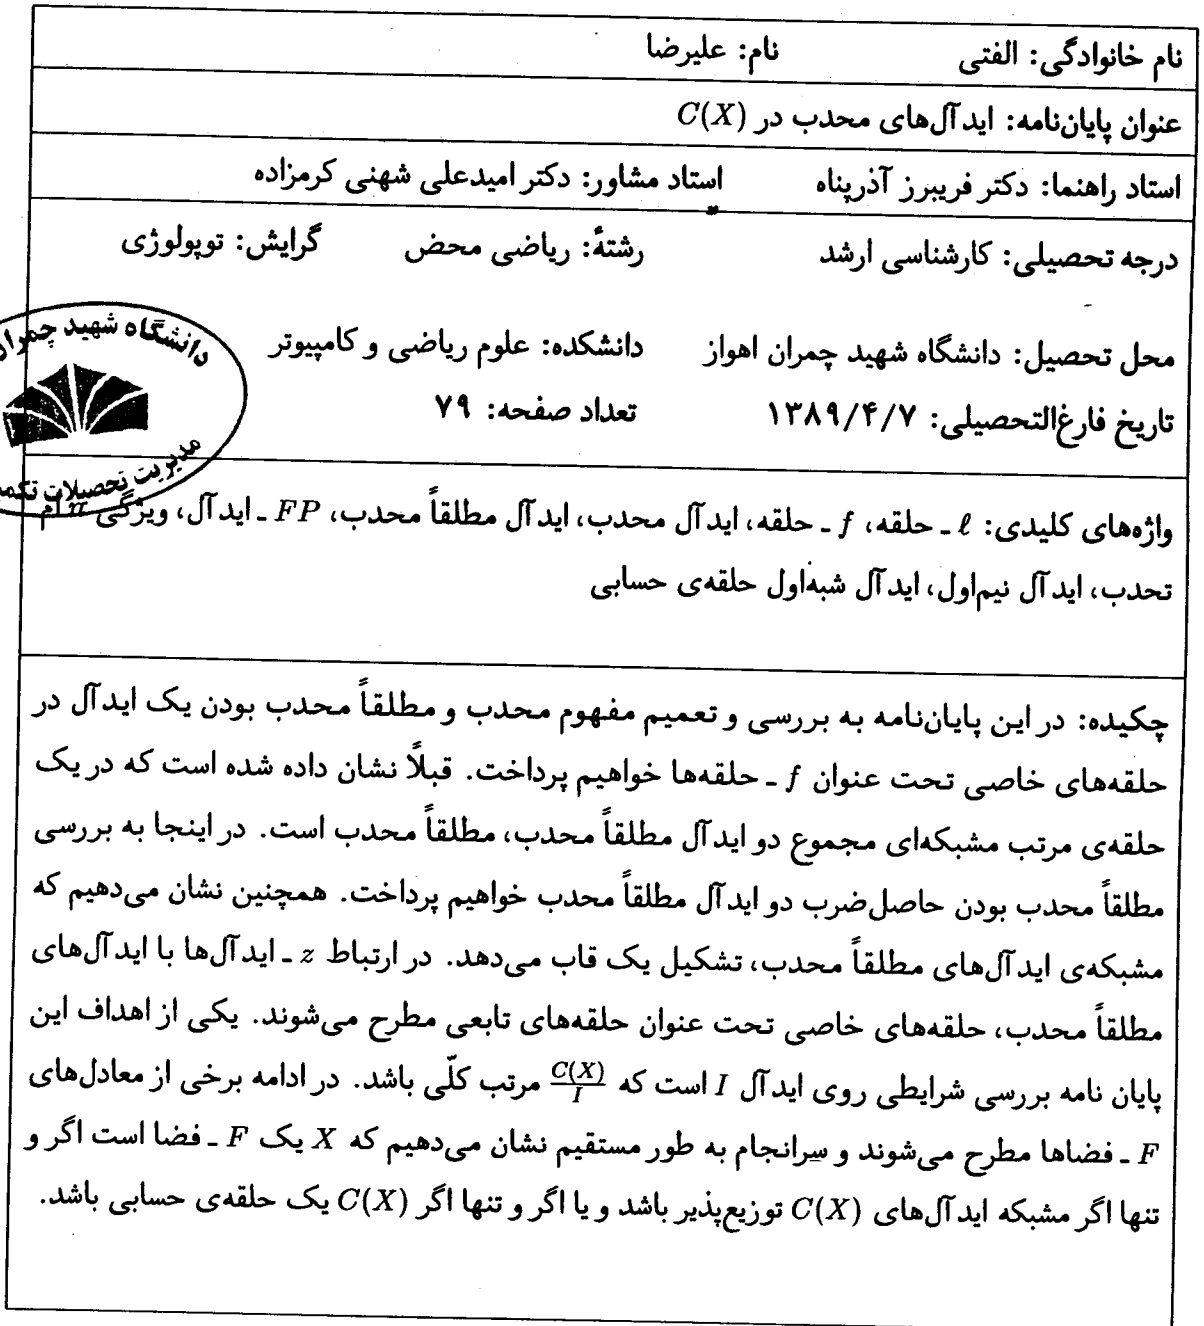 نام خانوادگی: الفتی نام: علیرضا
عنوان پایان‌نامه: ایدآل‌های محدب در C(X)
استاد راهنما: دکتر فریبرز آذرپناه استاد مشاور: دکتر امیدعلی شهنی کرمزاده
درجه تحصیلی: کارشناسی ارشد رشتهٔ: ریاضی محض گرایش: توپولوژی
دانشگاه شهید چمران
محل تحصیل: دانشگاه شهید چمران اهواز دانشکده: علوم ریاضی و کامپیوتر
تاریخ فارغ‌التحصیلی: ۱۳۸۹/۴/۷ تعداد صفحه: ۷۹
مدیریت تحصیلات
واژه‌های کلیدی: ℓ ـ حلقه، f ـ حلقه، ایدآل محدب، ایدآل مطلقاً محدب، FP ـ ایدآل، ویژگی n ام
تحدب، ایدآل نیم‌اول، ایدآل شبه‌اول حلقه‌ی حسابی
چکیده: در این پایان‌نامه به بررسی و تعمیم مفهوم محدب و مطلقاً محدب بودن یک ایدآل در
حلقه‌های خاصی تحت عنوان f ـ حلقه‌ها خواهیم پرداخت. قبلاً نشان داده شده است که در یک
حلقه‌ی مرتب مشبکه‌ای مجموع دو ایدآل مطلقاً محدب، مطلقاً محدب است. در اینجا به بررسی
مطلقاً محدب بودن حاصل‌ضرب دو ایدآل مطلقاً محدب خواهیم پرداخت. همچنین نشان می‌دهیم که
مشبکه‌ی ایدآل‌های مطلقاً محدب، تشکیل یک قاب می‌دهد. در ارتباط z ـ ایدآل‌ها با ایدآل‌های
مطلقاً محدب، حلقه‌های خاصی تحت عنوان حلقه‌های تابعی مطرح می‌شوند. یکی از اهداف این
پایان نامه بررسی شرایطی روی ایدآل I است که C(X)/I مرتب کلّی باشد. در ادامه برخی از معادل‌های
F ـ فضاها مطرح می‌شوند و سرانجام به طور مستقیم نشان می‌دهیم که X یک F ـ فضا است اگر و
تنها اگر مشبکه ایدآل‌های C(X) توزیع‌پذیر باشد و یا اگر و تنها اگر C(X) یک حلقه‌ی حسابی باشد.